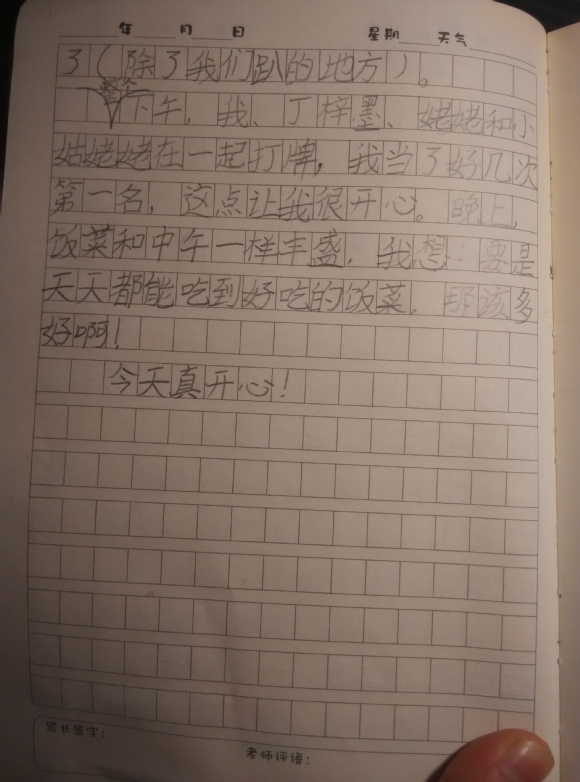 年 月 日 星期 天气
了（除了我们趴的地方）。
整个下午，我、丁梓墨、姥姥和小
姑姥姥在一起打牌，我当了好几次
第一名，这点让我很开心。晚上，
饭菜和中午一样丰盛，我想：要是
天天都能吃到好吃的饭菜，那该多
好啊！
今天真开心！
家长签字：
老师评语：